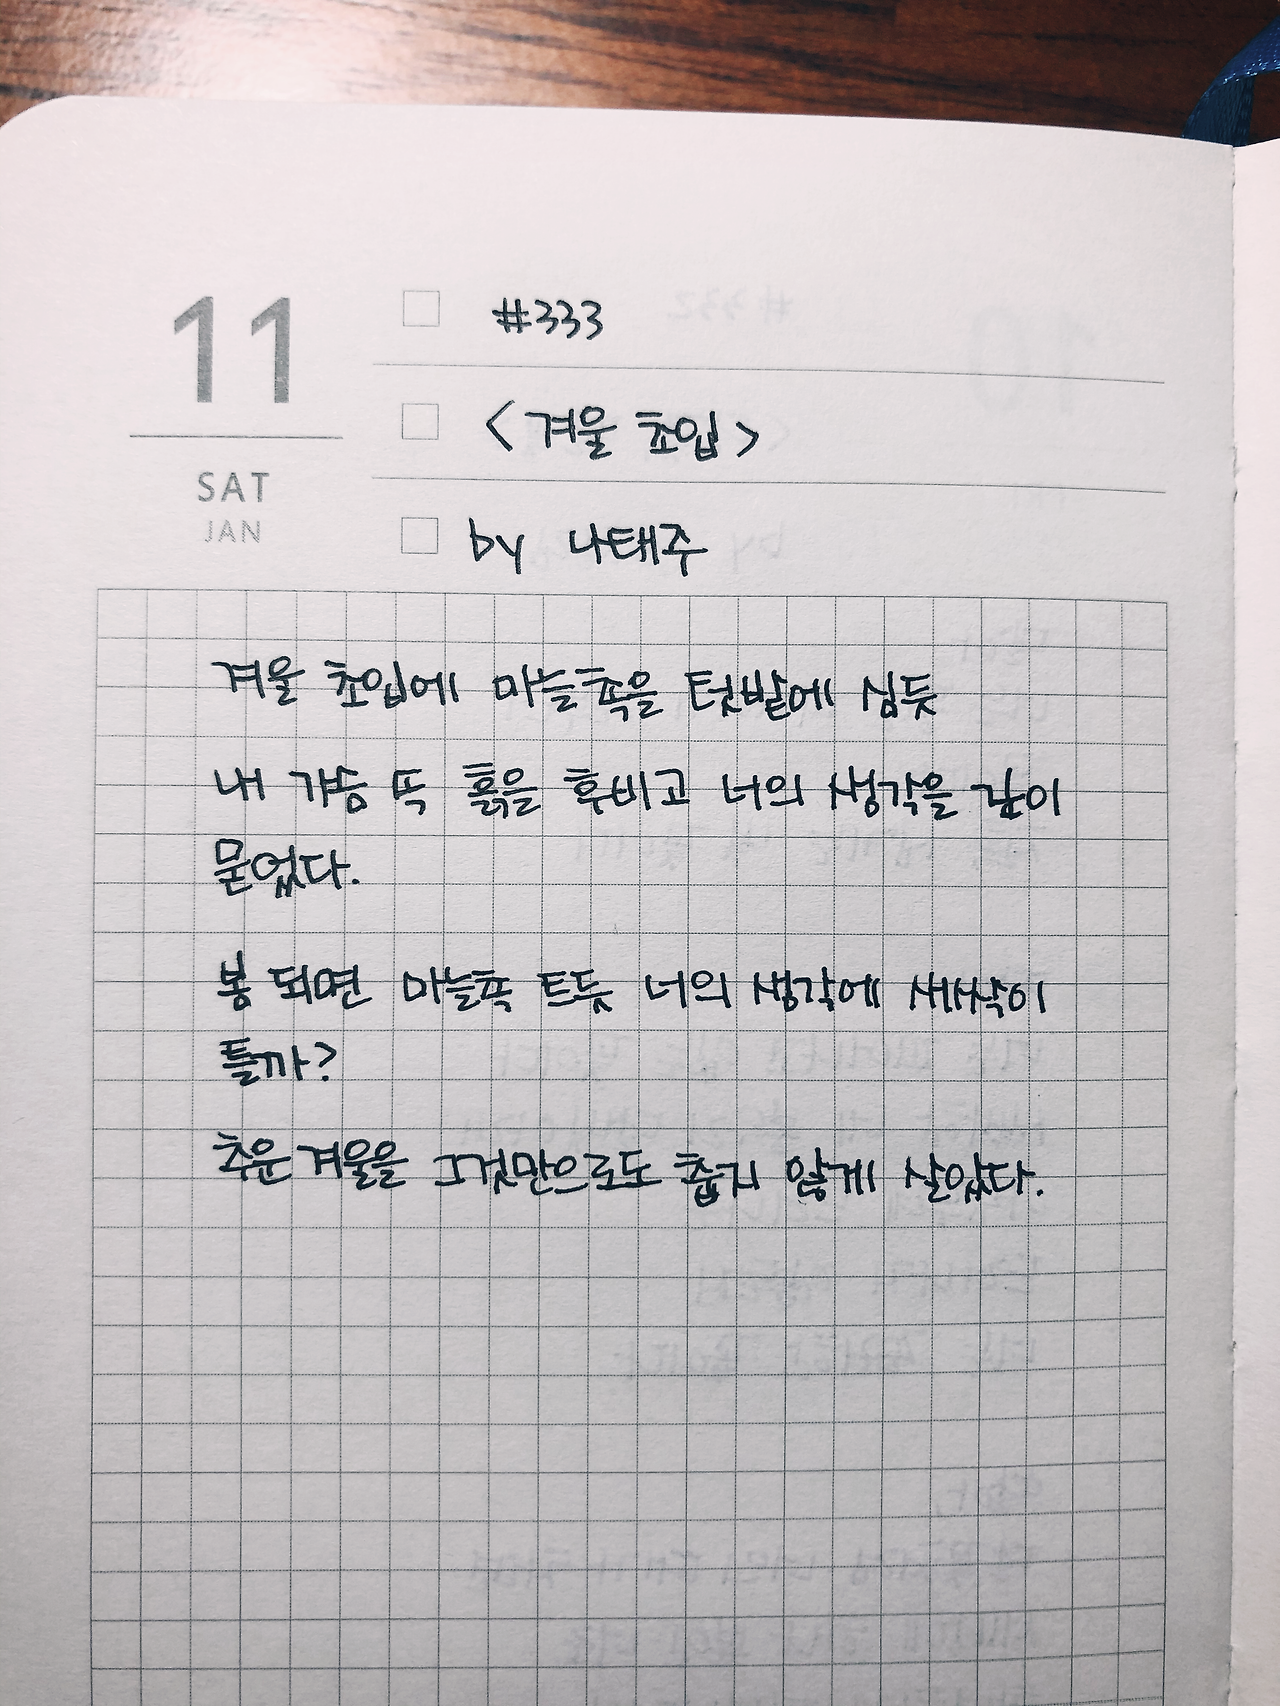 11
SAT
JAN
#333
<겨울 초입>
by 나태주
겨울 초입에 마늘촉을 텃밭에 심듯
내 가슴 또 흙을 후비고 너의 생각을 깊이
묻었다.
봄 되면 마늘촉 트듯 너의 생각에 새싹이
틀까?
추운 겨울을 그것만으로도 춥지 않게 살았다.